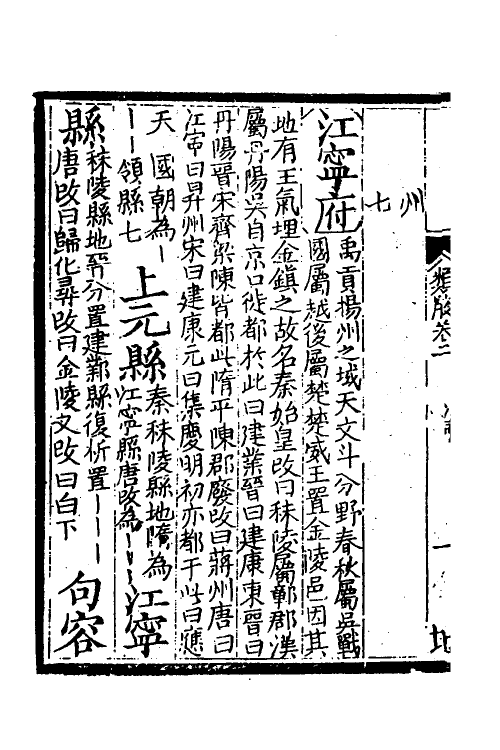 類腋卷二 一 地
州
七
江寧府 禹貢揚州之域天文斗分野春秋屬吳戰
國屬越後屬楚楚威王置金陵邑因其
地有王氣埋金鎮之故名秦始皇改曰秣陵屬鄣郡漢
屬丹陽吳自京口徙都於此曰建業晉曰建康東晉曰
丹陽晉宋齊梁陳皆都此隋平陳郡廢改曰蔣州唐曰
江寧曰昇州宋曰建康元曰集慶明初亦都于此曰應
天 國朝為丨
丨丨領縣七
上元縣 秦秣陵縣地隋為
江寧縣唐改為丨丨丨 江寧
縣 秣陵縣地晉分置建鄴縣復析置丨丨丨
唐改曰歸化尋改曰金陵又改曰白下 句容